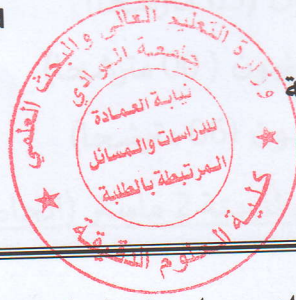 وزارة التعليم العالي والبحث العلمي
جامعة الوادي
نيابة العمادة
للدراسات والمسائل
المرتبطة بالطلبة
كلية العلوم الدقيقة